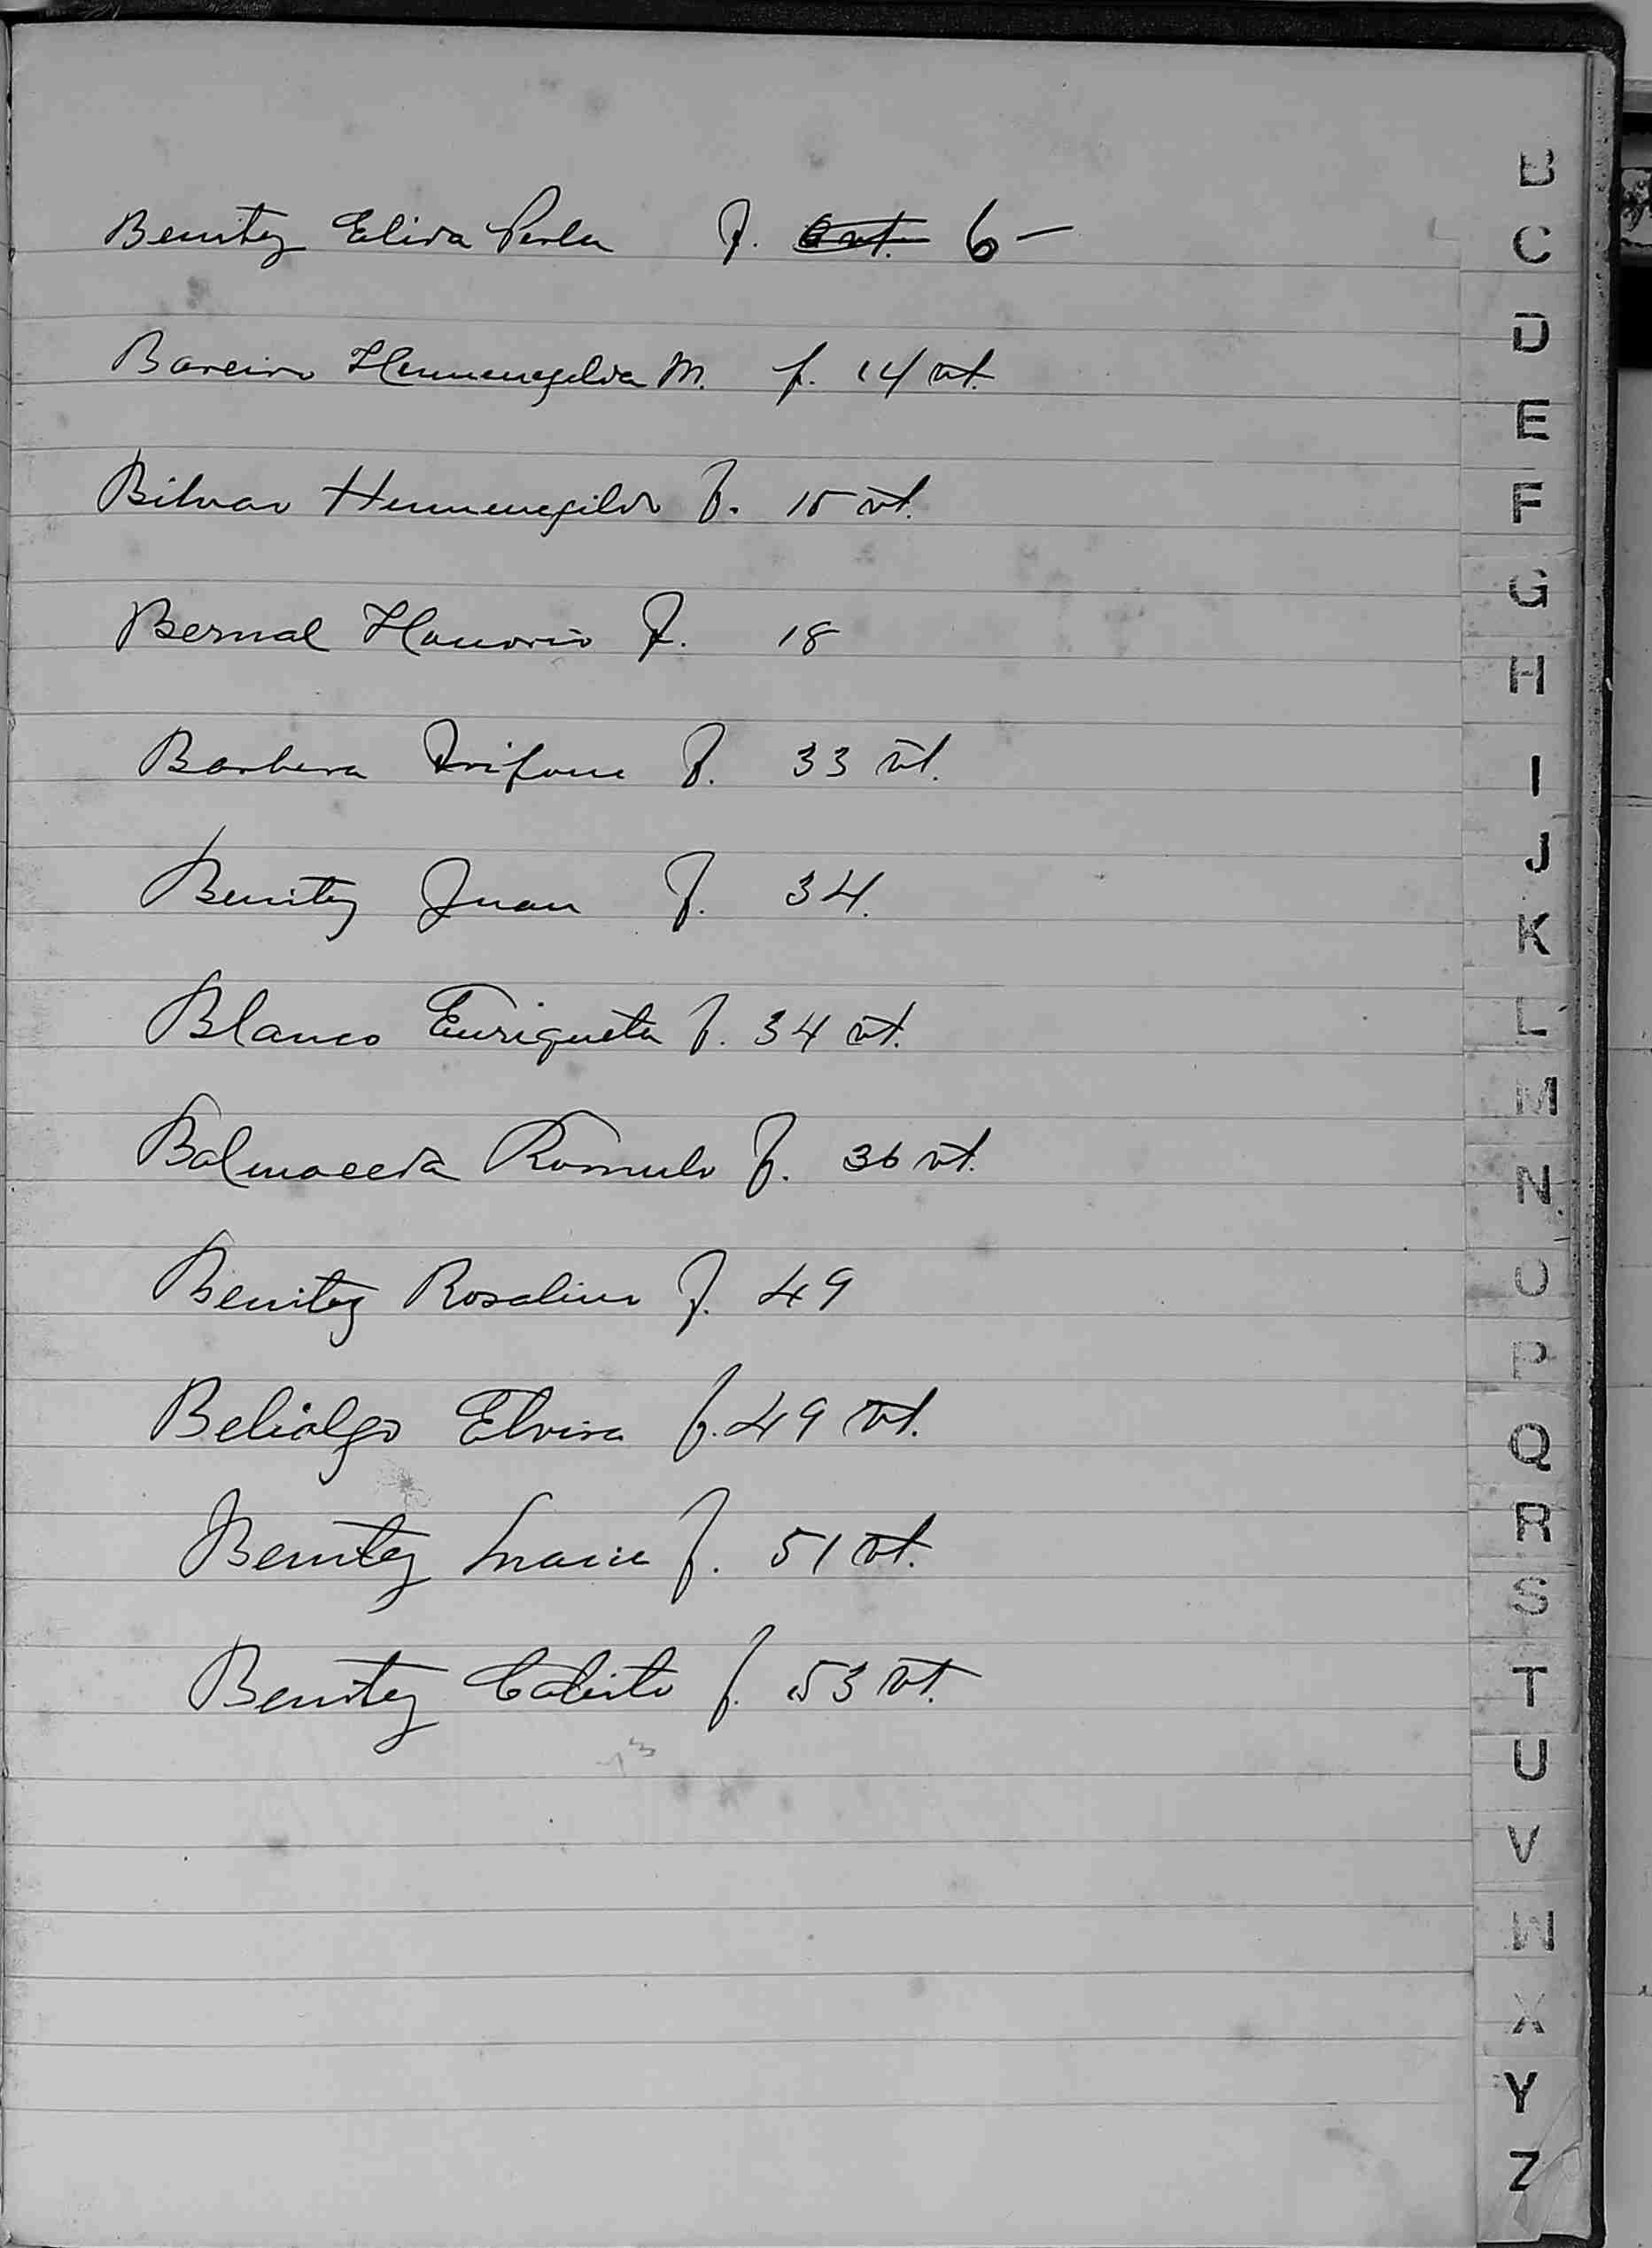 Benitez Elida Perla f. 6 vt. 6 -
Bareiro Hermenegilda M. f. 14 vt.
Bilvao Hermenegildo f. 15 vt.
Bernal Honorio f. 18
Barbera Trifone f. 33 vt.
Benitez Juan f. 34.
Blanco Enriqueta f. 34 vt.
Balmaceda Romulo f. 36 vt.
Benitez Rosalino f. 49
Belialgo Elvira f. 49 vt.
Benitez f. 51 vt.
Benitez Calisto f. 53 vt.
B
C
D
E
F
G
H
I
J
K
L
M
N
O
P
Q
R
S
T
U
V
W
X
Y
Z